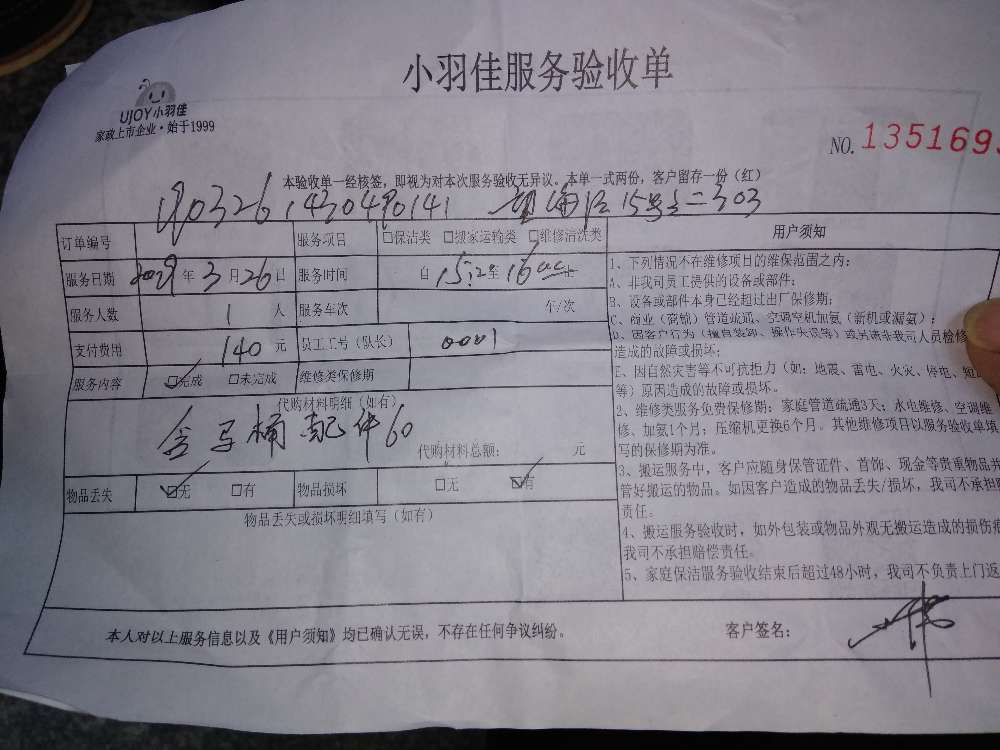 小羽佳服务验收单
UJOY小羽佳
家政上市企业·始于1999
NO. 1351693
本验收单一经核签，即视为对本次服务验收无异议。本单一式两份，客户留存一份（红）
15号二303
订单编号 服务项目 保洁类 搬家运输类 维修清洗类
服务日期 年 3 月 26 日 服务时间 自 15:2 至 16
服务人数 1 人 服务车次 年/次
支付费用 140 元 员工工号（队长） 0001
服务内容 完成 未完成 维修类保修期
代购材料明细（如有）
含马桶配件60
代购材料总额： 元
物品丢失 无 有 物品损坏 无 有
物品丢失或损坏明细填写（如有）
用户须知
1、下列情况不在维修项目的维保范围之内：
A、非我司员工提供的设备或部件；
B、设备或部件本身已经超过出厂保修期；
C、商业（瓷镜）管道疏通、空调空机加氨（新机或漏氨）；
D、因客户行为（擅自装卸、操作失误等）或另请非我司人员检修
造成的故障或损坏；
E、因自然灾害等不可抗拒力（如：地震、雷电、火灾、停电、短
等）原因造成的故障或损坏。
2、维修类服务免费保修期：家庭管道疏通3天；水电维修、空调维
修、加氨1个月；压缩机更换6个月。其他维修项目以服务验收单填
写的保修期为准。
3、搬运服务中，客户应随身保管证件、首饰、现金等贵重物品并
管好搬运的物品。如因客户造成的物品丢失/损坏，我司不承担
责任。
4、搬运服务验收时，如外包装或物品外观无搬运造成的损伤痕
我司不承担赔偿责任。
5、家庭保洁服务验收结束后超过48小时，我司不负责上门返
本人对以上服务信息以及《用户须知》均已确认无误，不存在任何争议纠纷。
客户签名：